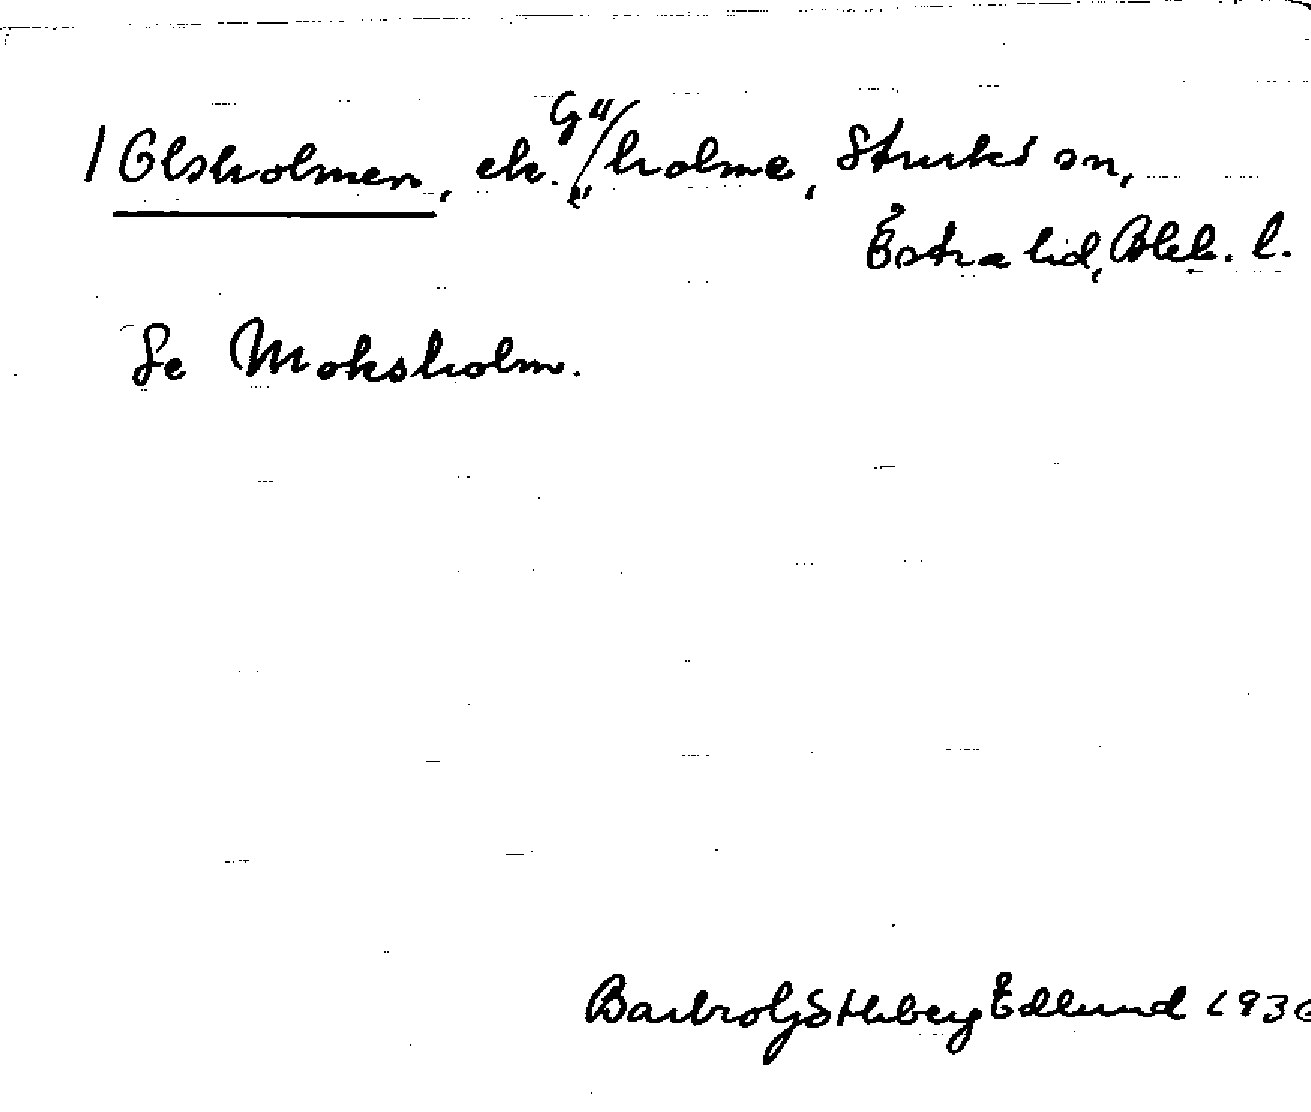 / Olsholmen, ek. G"/"holme, Sturkö sn,
Östra hd, Blek. l.
Se Moksholm.
Barbro Göthberg Edlund 1936